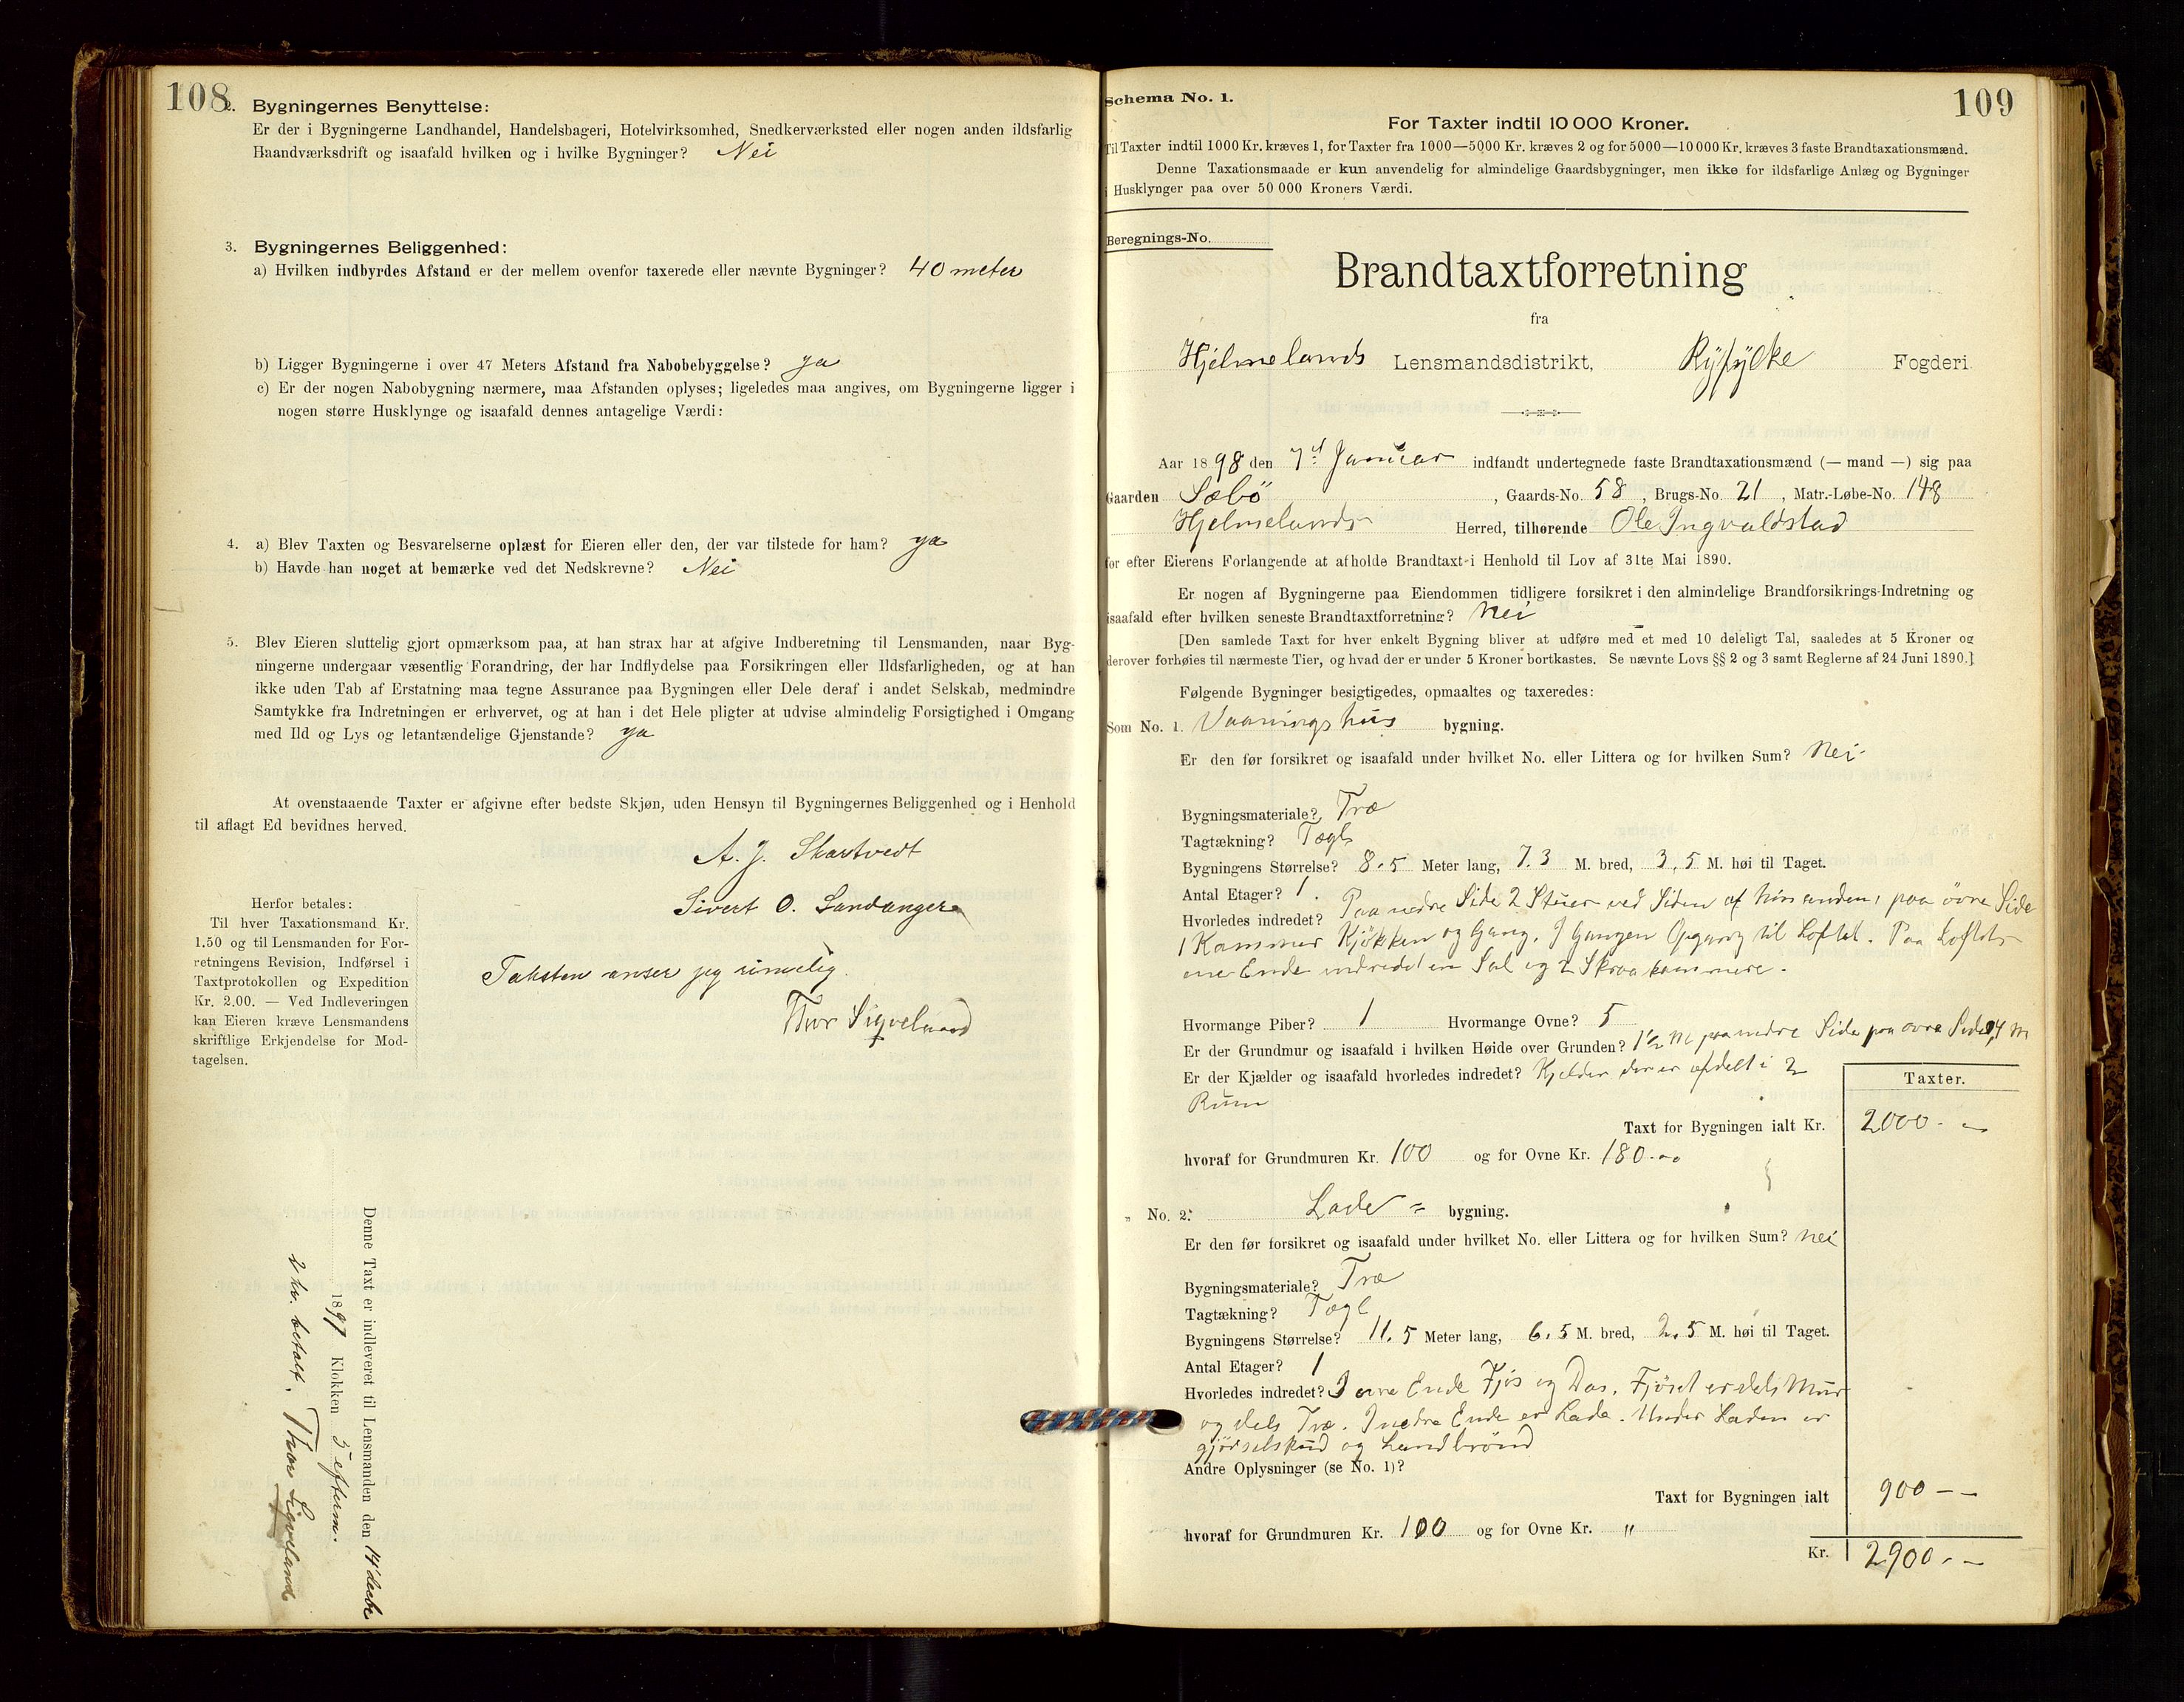 108
2. Bygningernes Benyttelse:
Er der i Bygningerne Landhandel, Handelsbageri, Hotelvirksomhed, Snedkerværksted eller nogen anden ildsfarlig
Haandværksdrift og isaafald hvilken og i hvilke Bygninger? Nei
3. Bygningernes Beliggenhed:
a) Hvilken indbyrdes Afstand er der mellem ovenfor taxerede eller nævnte Bygninger? 40 meter
b) Ligger Bygningerne i over 47 Meters Afstand fra Nabobebyggelse? ya
c) Er der nogen Nabobygning nærmere, maa Afstanden oplyses; ligeledes maa angives, om Bygningerne ligger i
nogen større Husklynge og isaafald dennes antagelige Værdi:
4. a) Blev Taxten og Besvarelserne oplæst for Eieren eller den, der var tilstede for ham? ya
b) Havde han noget at bemærke ved det Nedskrevne? Nei
5. Blev Eieren sluttelig gjort opmærksom paa, at han strax har at afgive Indberetning til Lensmanden, naar Byg-
ningerne undergaar væsentlig Forandring, der har Indflydelse paa Forsikringen eller Ildsfarligheden, og at han
ikke uden Tab af Erstatning maa tegne Assurance paa Bygningen eller Dele deraf i andet Selskab, medmindre
Samtykke fra Indretningen er erhvervet, og at han i det Hele pligter at udvise almindelig Forsigtighed i Omgang
med Ild og Lys og letantændelige Gjenstande? ya
At ovenstaaende Taxter er afgivne efter bedste Skjøn, uden Hensyn til Bygningernes Beliggenhed og i Henhold
til aflagt Ed bevidnes herved.
A. J. Skartvedt
Sivert O. Sandanger
Taksten anser jeg rimelig.
Thor Sigveland
Herfor betales:
Til hver Taxationsmand Kr.
1.50 og til Lensmanden for For-
retningens Revision, Indførsel i
Taxtprotokollen og Expedition
Kr. 2.00. — Ved Indleveringen
kan Eieren kræve Lensmandens
skriftlige Erkjendelse for Mod-
tagelsen.
Denne Taxt er indleveret til Lensmanden den 14' decbr
1897 Klokken 5 efterm.
2 kr. betalt. Thor Sigveland
109
Schema No. 1.
For Taxter indtil 10 000 Kroner.
Til Taxter indtil 1000 Kr. kræves 1, for Taxter fra 1000—5000 Kr. kræves 2 og for 5000—10 000 Kr. kræves 3 faste Brandtaxationsmænd.
Denne Taxationsmaade er kun anvendelig for almindelige Gaardsbygninger, men ikke for ildsfarlige Anlæg og Bygninger
i Husklynger paa over 50 000 Kroners Værdi.
Beregnings-No.
Brandtaxtforretning
fra
Hjelmelands Lensmandsdistrikt, Ryfylke Fogderi
Aar 1898 den 7d Januar indfandt undertegnede faste Brandtaxationsmænd (— mand —) sig paa
Gaarden Sæbö, Gaards-No. 58, Brugs-No. 21, Matr.-Løbe-No. 148
Hjelmelands Herred, tilhørende Ole Ingvaldstad
for efter Eierens Forlangende at afholde Brandtaxt i Henhold til Lov af 31te Mai 1890.
Er nogen af Bygningerne paa Eiendommen tidligere forsikret i den almindelige Brandforsikrings-Indretning og
isaafald efter hvilken seneste Brandtaxtforretning? Nei
[Den samlede Taxt for hver enkelt Bygning bliver at udføre med et med 10 deleligt Tal, saaledes at 5 Kroner og
derover forhøies til nærmeste Tier, og hvad der er under 5 Kroner bortkastes. Se nævnte Lovs §§ 2 og 3 samt Reglerne af 24 Juni 1890.]
Følgende Bygninger besigtigedes, opmaaltes og taxeredes:
Som No. 1. Vaaningshus bygning.
Er den før forsikret og isaafald under hvilket No. eller Littera og for hvilken Sum? Nei
Bygningsmateriale? Træ
Tagtækning? Tægl
Bygningens Størrelse? 8.5 Meter lang, 7.3 M. bred, 3.5 M. høi til Taget.
Antal Etager? 1.
Hvorledes indredet? Paa nedre Side 2 Stuer ved Siden af hinanden, paa övre Side
1 Kammer Kjökken og Gang. I Gangen Opgang til Loftet. Paa Loftets
ene Ende indredet en Sal og 2 Skraakammere.
Hvormange Piber? 1 Hvormange Ovne? 5
Er der Grundmur og isaafald i hvilken Høide over Grunden? 1½ M paa nedre Side paa övre Side 0,4 M
Er der Kjælder og isaafald hvorledes indredet? Kjelder der er afdelt i 2
Rum
Taxter.
Taxt for Bygningen ialt Kr. 2000 - -
hvoraf for Grundmuren Kr. 100 og for Ovne Kr. 180.--
" No. 2. Lade = bygning.
Er den før forsikret og isaafald under hvilket No. eller Littera og for hvilken Sum? Nei
Bygningsmateriale? Træ
Tagtækning? Tægl
Bygningens Størrelse? 11.5 Meter lang, 6.5 M. bred, 2.5 M. høi til Taget.
Antal Etager? 1
Hvorledes indredet? I övre Ende Fjös og Das. Fjöset er dels Mur
og dels Træ. I nedre Ende er Lade. Under Laden er
gjödselskud og Landbrönd
Andre Oplysninger (se No. 1)?
Taxt for Bygningen ialt 900 - -
hvoraf for Grundmuren Kr. 100 og for Ovne Kr. "
Kr. 2900 - -